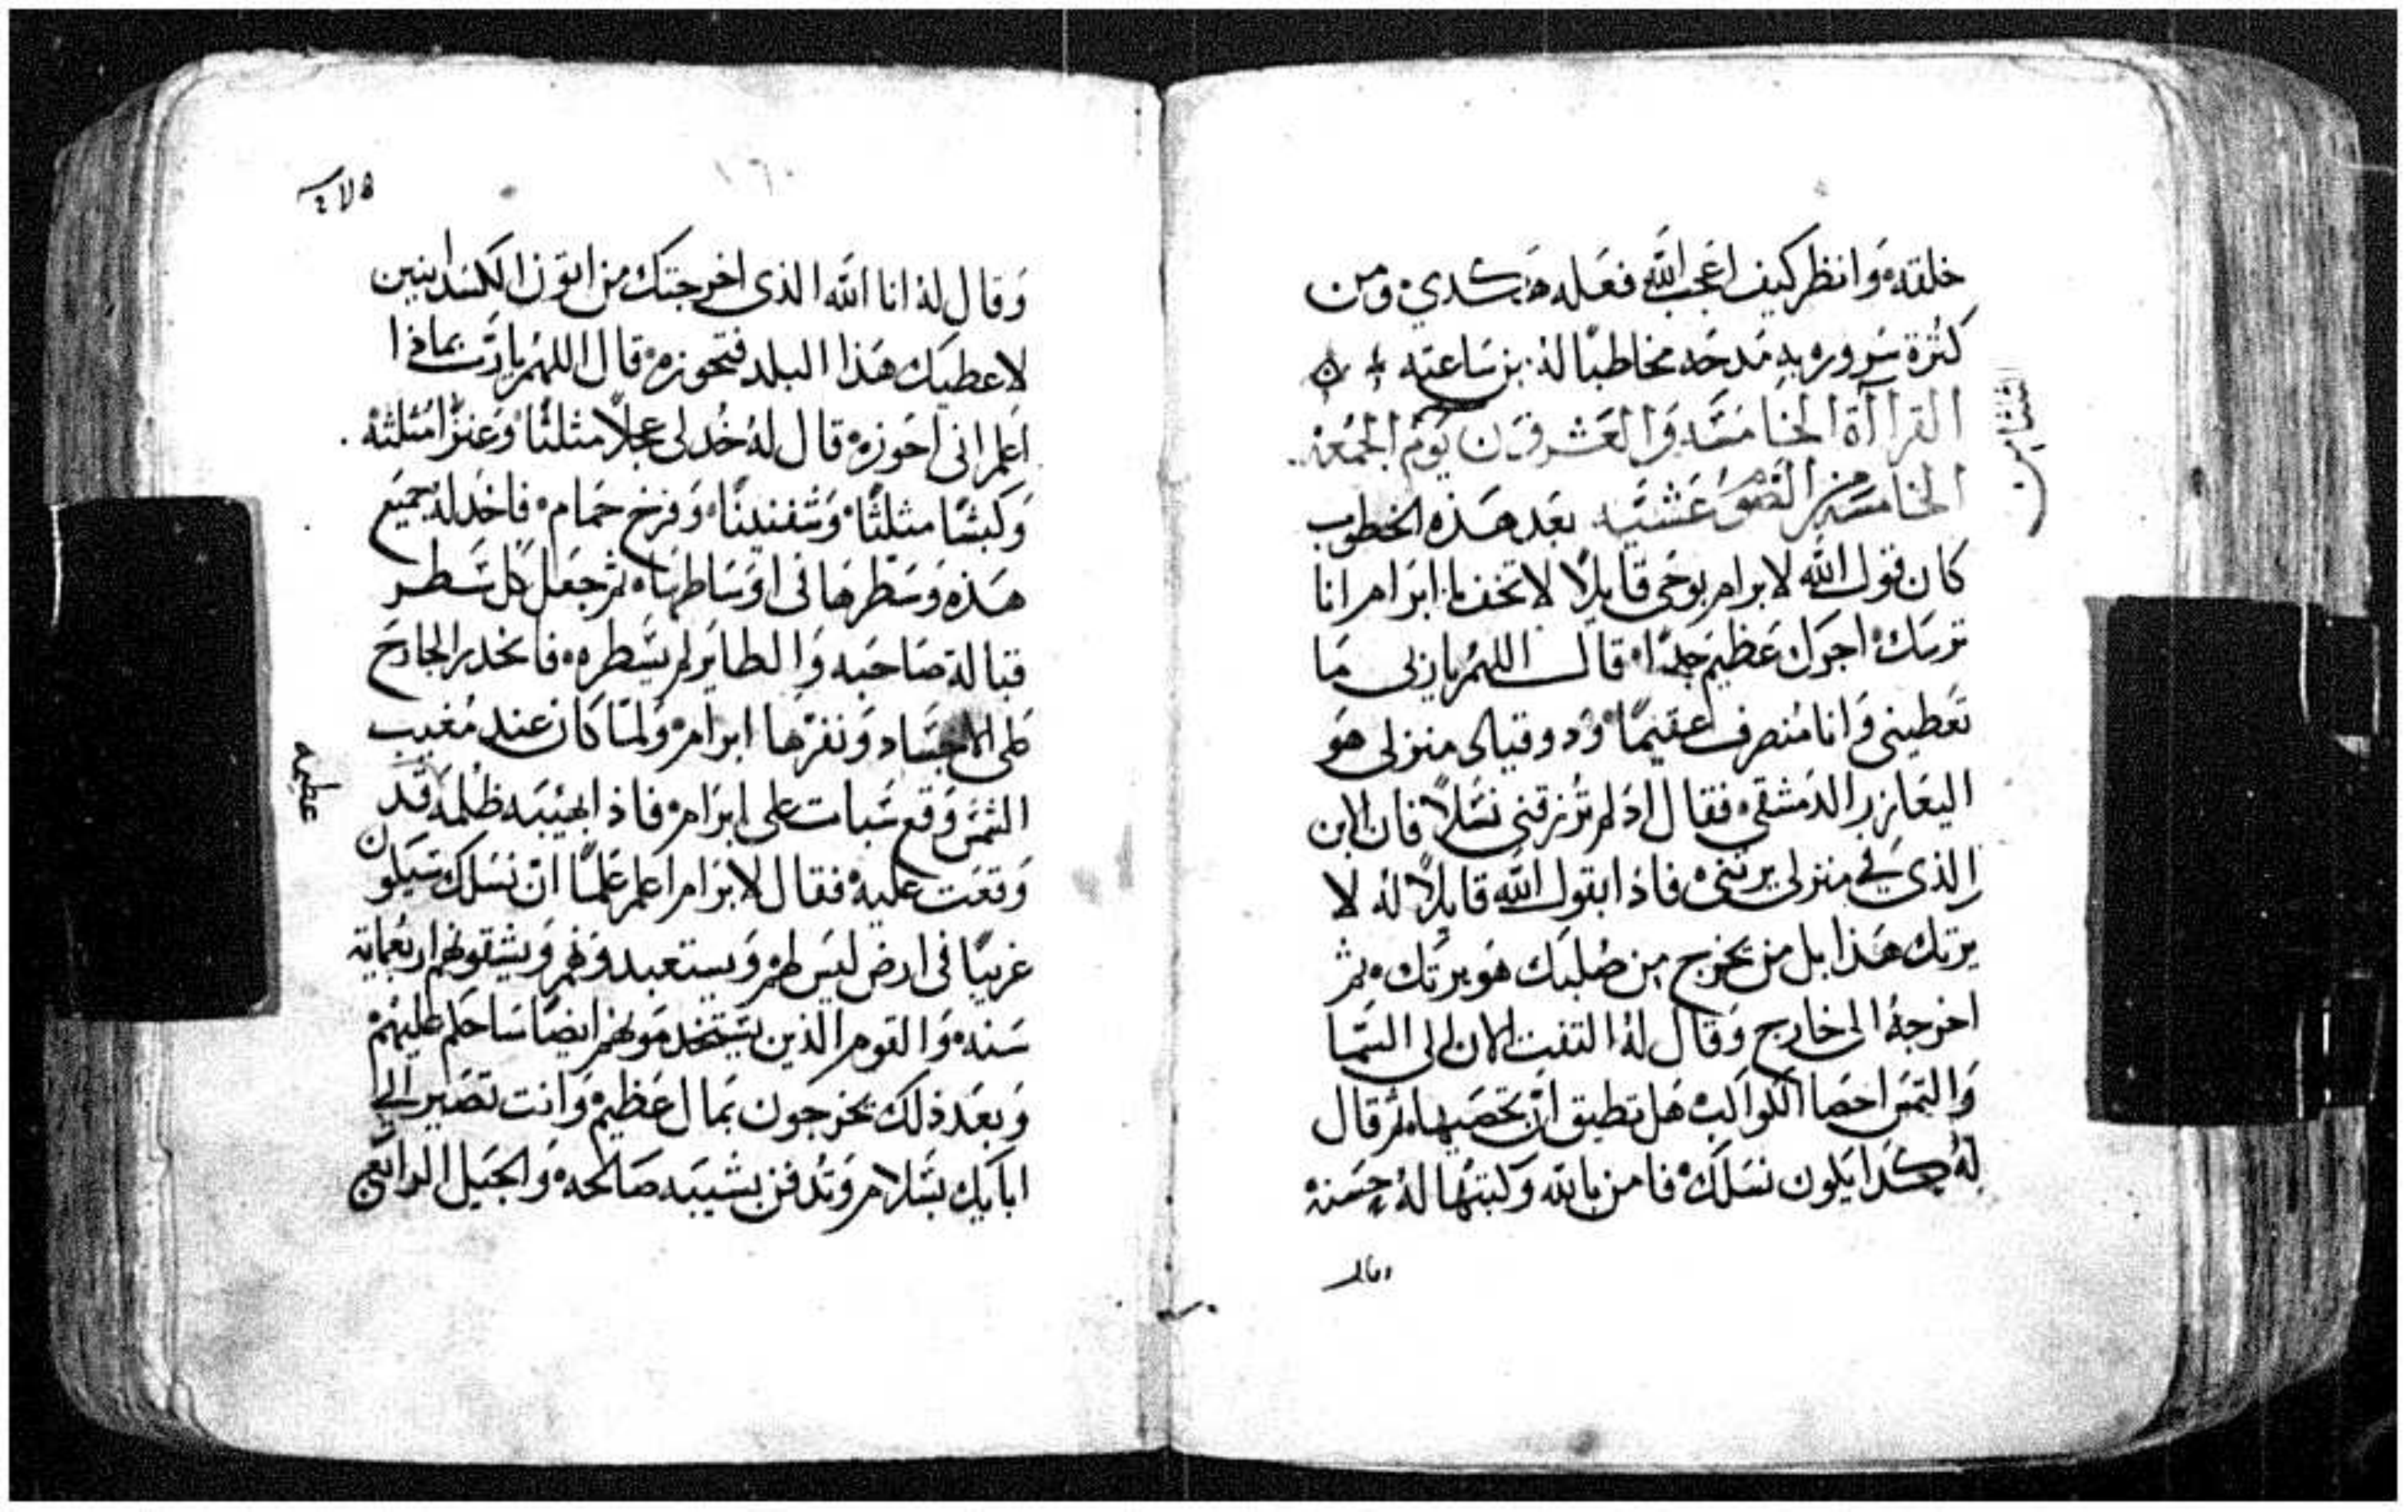 خلقته وانظر كيف اعجب الله فعله هكدي ومن
كثرة سروره به مدحه مخاطبًا له من ساعته
القرااة الخامسه والعشرون يوم الجمعه
الخامسه من الصوم عشيه بعد هذه الخطوب
كان قول الله لابرام بوحى قايلًا لا تخف يا ابرام انا
ترسك اجرك عظيم جدًا قال اللهم يا ربى ما
تعطينى وانا منصرف عقيمًا ودو قيالى منزلى هو
اليعازر الدمشقى فقال اد لم ترزقنى نسلًا فان الابن
الذى في منزلى يرثنى فاذا بقول الله قايلًا له لا
يرتك هذا بل من يخرج من صلبك هو يرتك ثم
اخرجه الى خارج وقال له التفت الان الى السما
والتمس احصا الكواكب هل تطيق ان تحصيها ثم قال
له كدا يكون نسلك فامن بالله وكتبتها له حسنه
وقال
وقال له انا الله الذى اخرجتك من اتون الكسدانيين
لاعطيك هذا البلد فتحوزه قال اللهم يا رب بماذا
اعلم انى احوزه قال له خد لى عجلًا مثلثًا وعنزًا مثلثه
وكبشًا مثلثًا وشفنينًا وفرخ حمام فاخد له جميع
هذه وسطرها فى اوساطها ثم جعل كل شطر
قبالة صاحبه والطاير لم يشطره فانحدر الجارح
على الاجساد ونفرها ابرام ولما كان عند مغيب
الشمس وقع سبات على ابرام فاذا بهيبه ظلمه قد
عظيمه
وقعت عليه فقال لابرام اعلم علمًا ان نسلك سيكون
غريبًا فى ارض ليس لهم ويستعبدونهم ويشقونهم اربعماية
سنه والقوم الذين يستخدمونهم ايضًا ساحكم عليهم
وبعد ذلك يخرجون بمال عظيم وانت تصير الى
ابايك بسلام وتدفن بشيبه صالحه والجيل الرابع